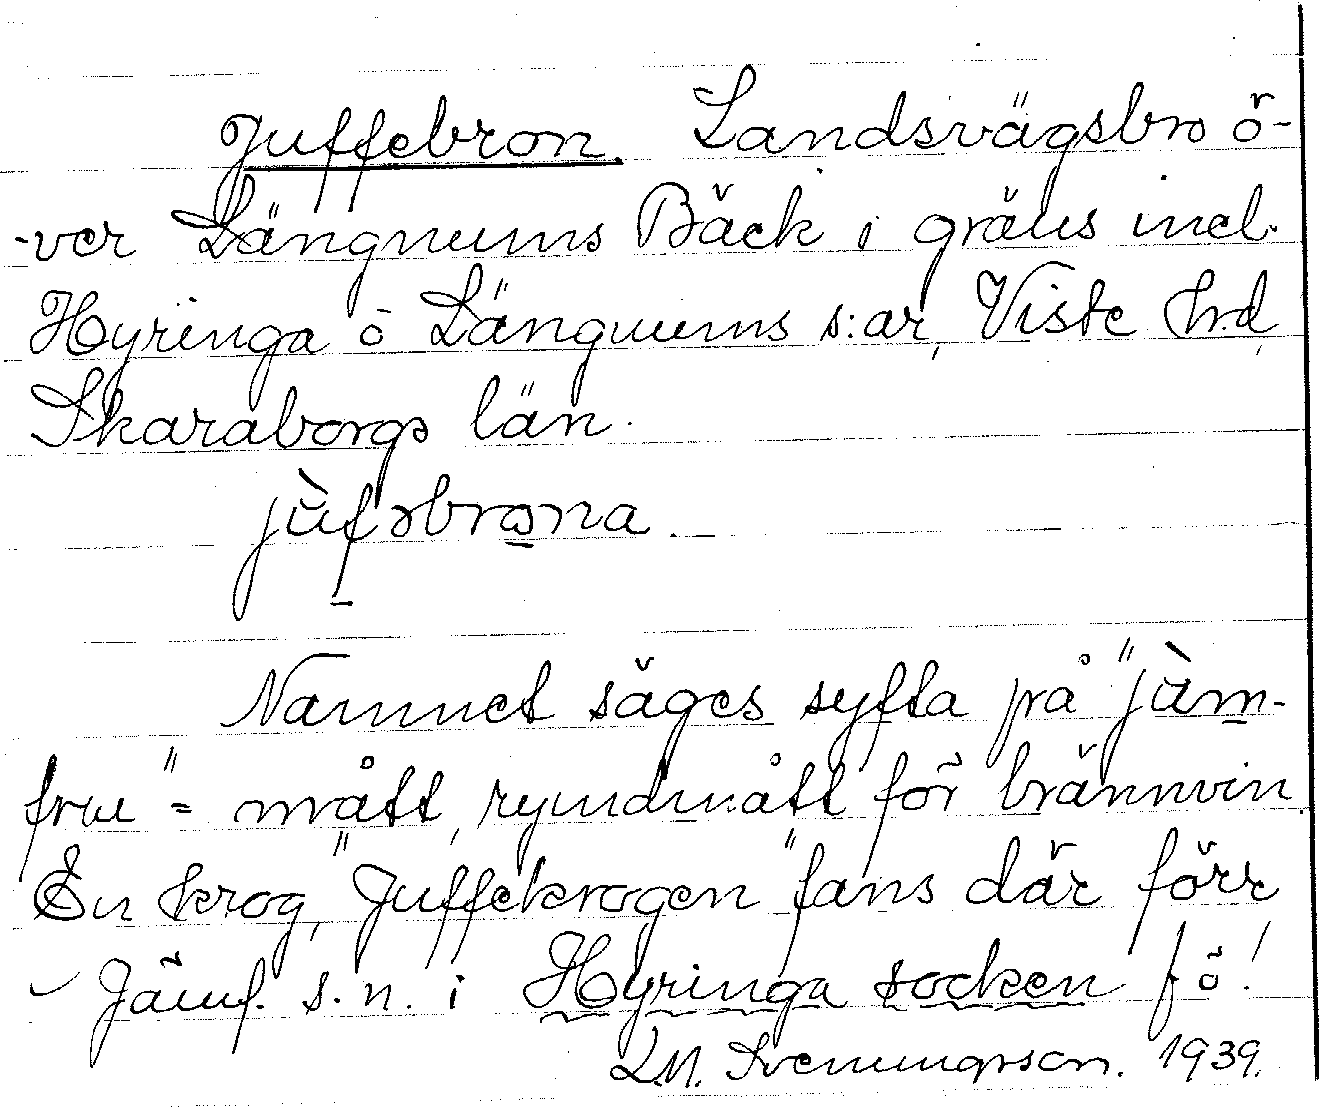 Juffebron. Landsvägsbro ö-
-ver Längnums Bäck i gräns mel.
Hyringa o Längnums s:ar, Viste hrd,
Skaraborgs län.
jùfəbrona.
Namnet säges syfta på "jùm-
fru" = mått, rymdmått för brännvin.
En krog, "Juffekrogen" fans där förr
- Jämf. s.n. i Hyringa socken fö!
L.M. Svenungsson. 1939.